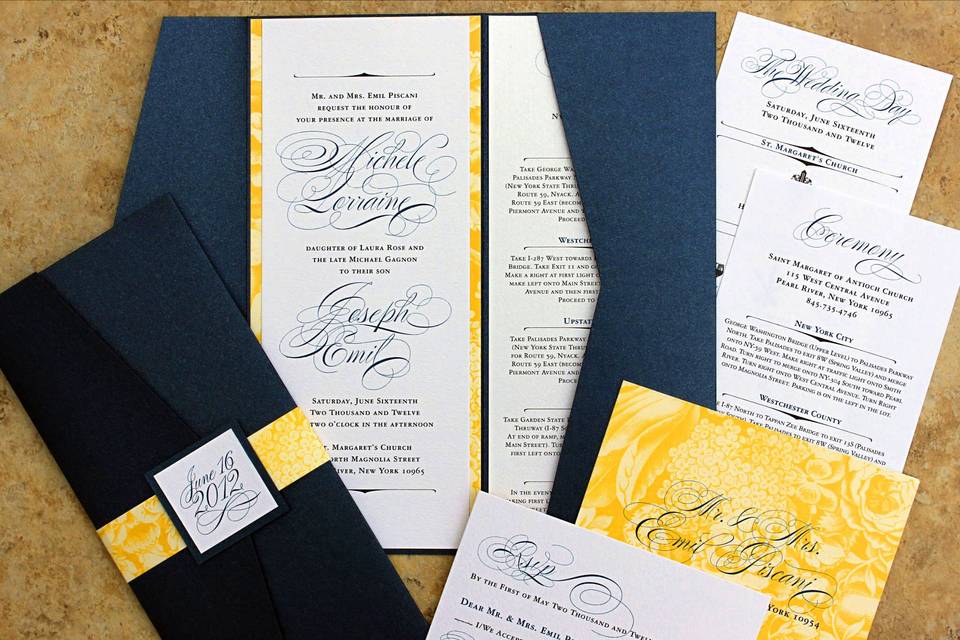 Mr. and Mrs. Emil Piscani
request the honour of
your presence at the marriage of
Michele
Lorraine
daughter of Laura Rose and
the late Michael Gagnon
to their son
Joseph
Emil
Saturday, June Sixteenth
Two Thousand and Twelve
two o'clock in the afternoon
. Margaret's Church
orth Magnolia Street
River, New York 10965
Take George Wa
Palisades Parkway
(New York State Thru
Route 59, Nyack. A
Route 59 East (becom
Piermont Avenue and T
Proceed
Westche
Take I-287 West towards
Bridge. Take Exit 11 and g
Make a right at first light o
make left onto Main Stree
Avenue and then first
Proceed to
Upstat
Take Palisades Parkway
(New York State Thru
for Route 59, Nyack.
Route 59 East (becom
Piermont Avenue and
Procee
Take Garden State
Thruway (I-87 So
At end of ramp, m
Main Street). To
first left onto
In the even
The Wedding Day
Saturday, June Sixteenth
Two Thousand and Twelve
St. Margaret's Church
Ceremony
Saint Margaret of Antioch Church
115 West Central Avenue
Pearl River, New York 10965
845-735-4746
New York City
George Washington Bridge (Upper Level) to Palisades Parkway
North. Take Palisades to exit 8W (Spring Valley) and merge
onto NY-59 West. Make right at traffic light onto Smith
Road. Turn right to merge onto NY-304 South toward Pearl
River. Turn right onto West Central Avenue. Turn Right
onto Magnolia Street. Parking is on the left in the lot.
Westchester County
I-87 North to Tappan Zee Bridge to exit 13S (Palisades
Parkway South). Take Palisades to exit 8W (Spring Valley) and
June 16
2012
Mr. & Mrs.
Emil Piscani
York 10954
Rsvp
By the First of May Two Thousand and Twelv
Dear Mr. & Mrs. Emil P
I/We Accep